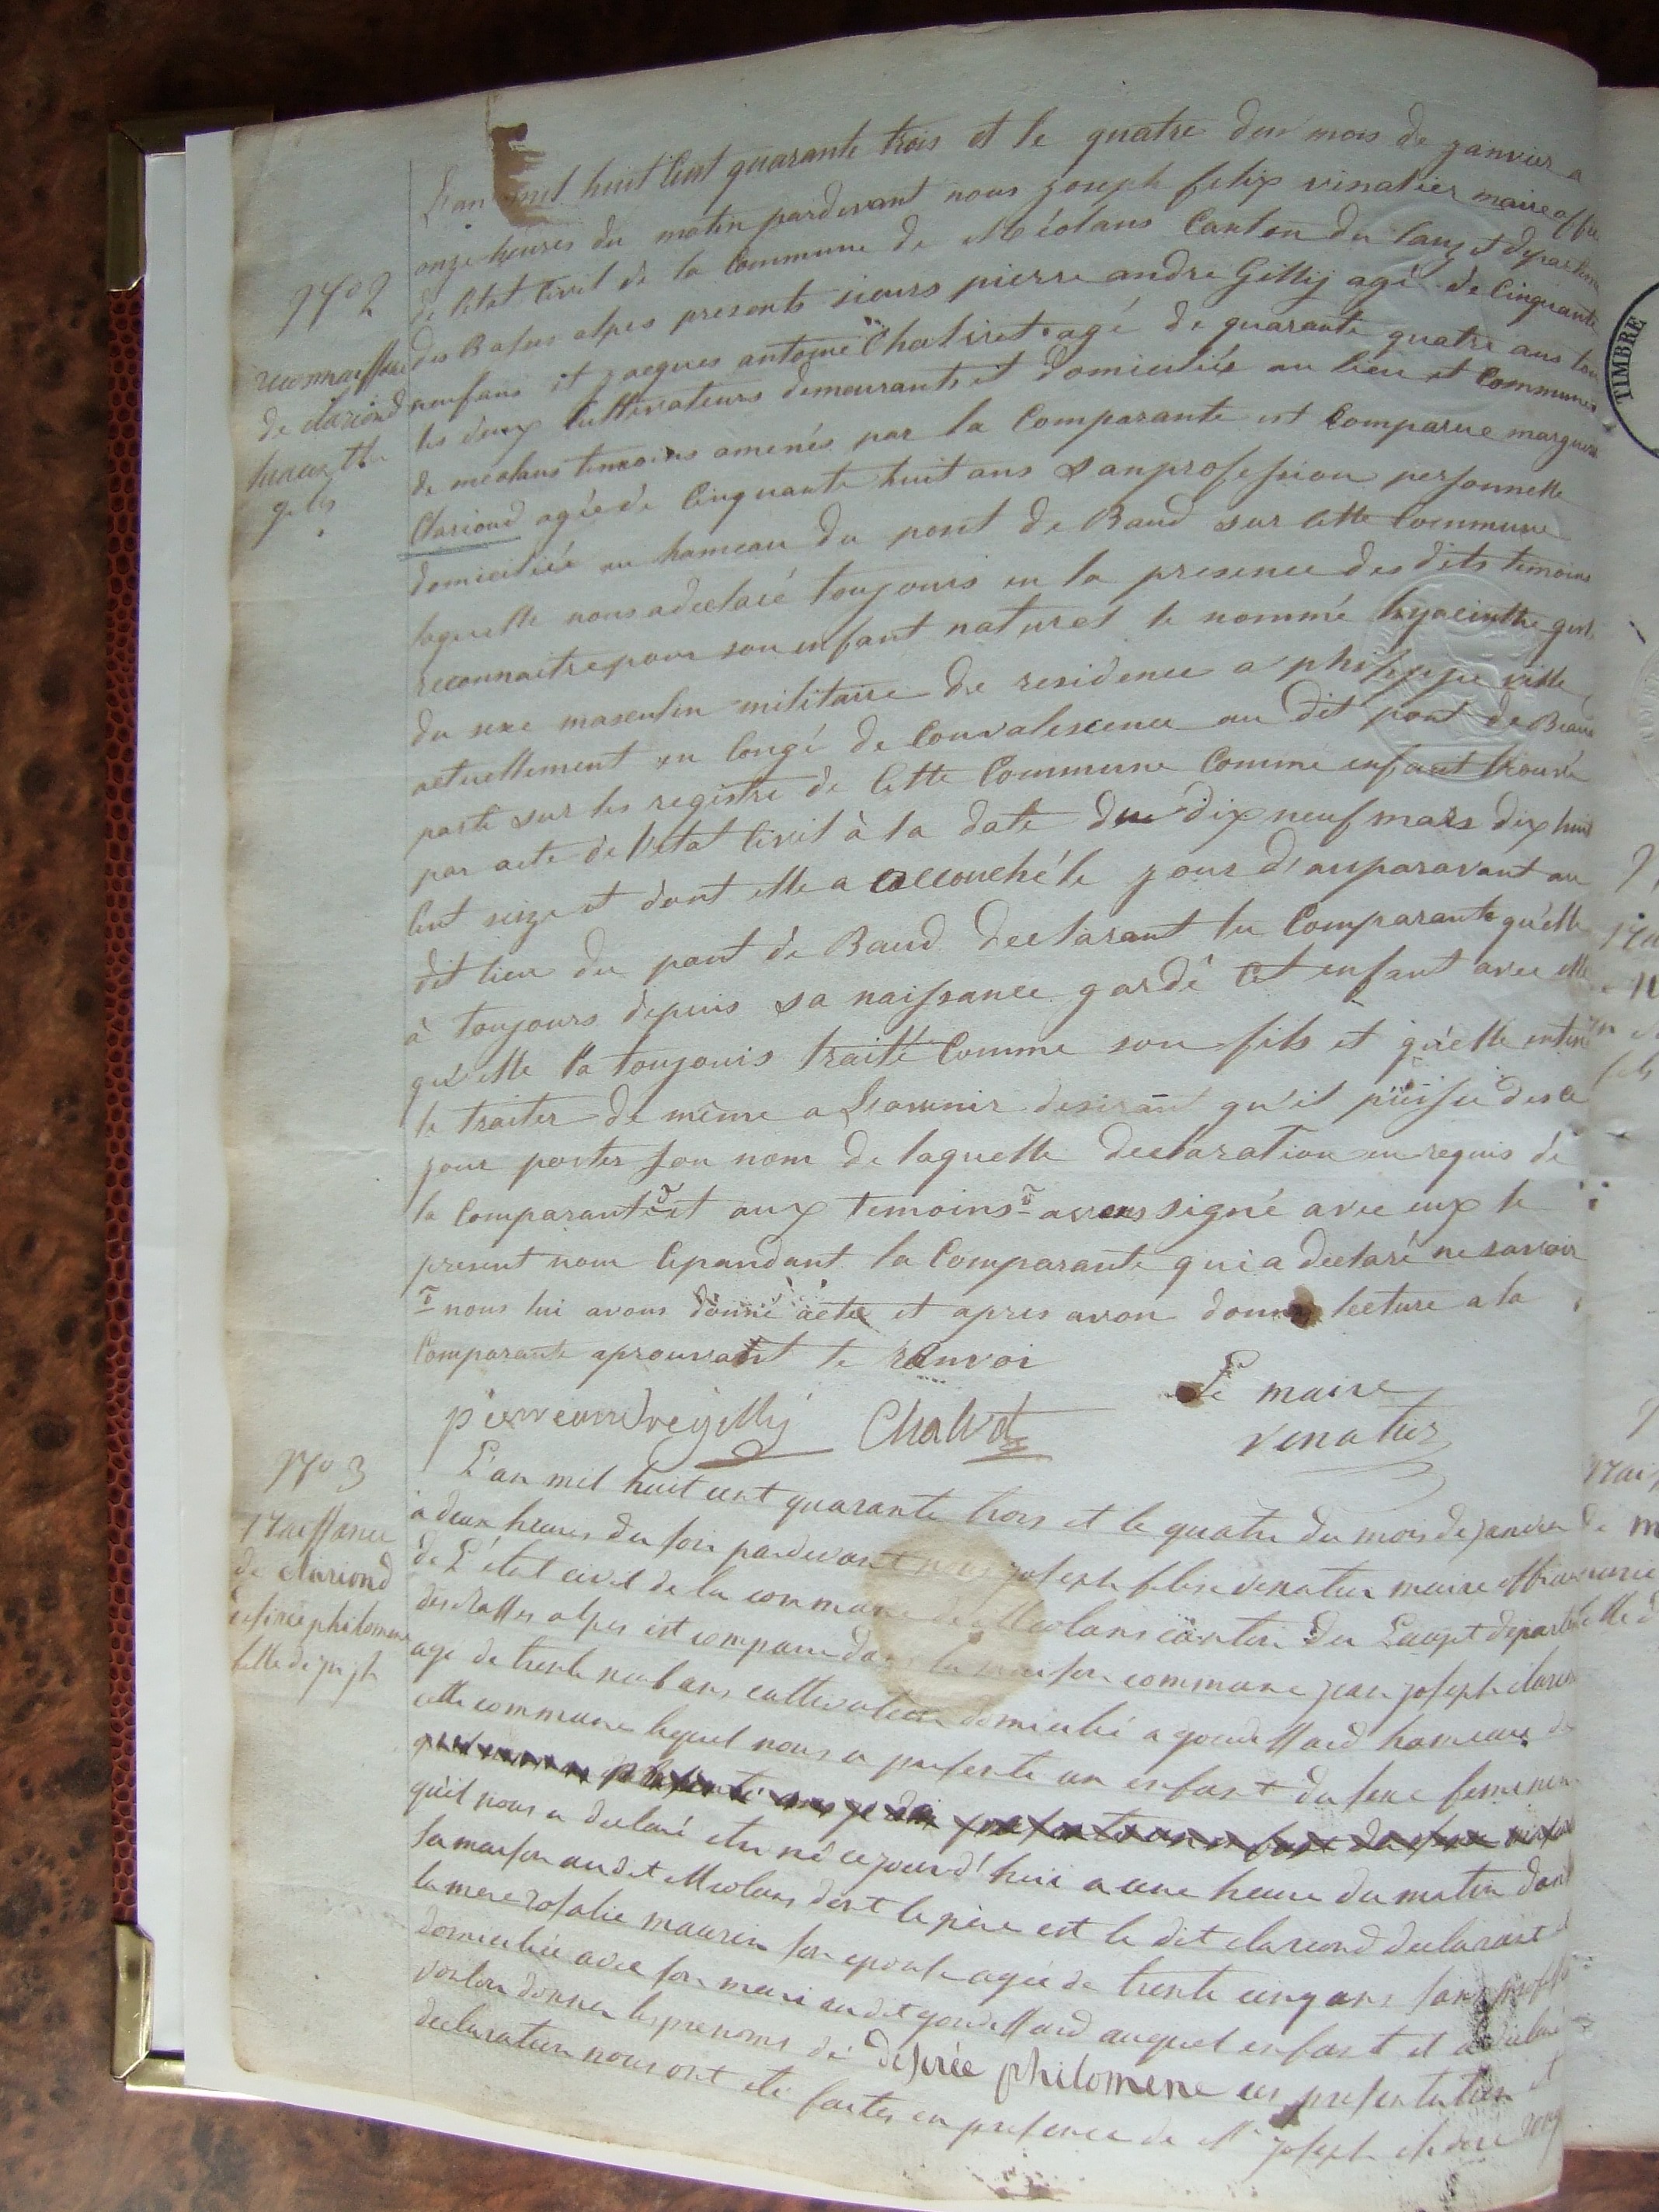 L'an mil huit Cent quarante trois et le quatre du mois de janvier a
onze heures du matin pardevant nous joseph felix vinatier maire offi
de letat Civil de la Commune de Méolans Canton du lauzet departem
des Basses alpes presents sieurs pierre andre Gilly agé de Cinquante
neuf ans et jacques antoine Chalvet agé de quarante quatre ans tou
les deux Cultivateurs demeurants et domiciliés au lieu et Commune
de meolans temoins amenés par la Comparante est Comparue margueri
Clariond agée de Cinquante huit ans sans profession personnelle
domiciliée au hameau du pont de Baud sur cette Commune
laquelle nous a declaré toujours en la presence des dits temoins
reconnaitre pour son enfant naturel le nommé hyacinthe
du sexe masculin militaire de residence a philippeville
actuellement en Congé de Convalescence au dit pont de Beaud
porté sur les registre de Cette Commune Comme enfant trouvé
par acte de l'etat Civil à la date du dix neuf mars dix huit
Cent seize et dont elle a accouché le jour d'auparavant au
dit lieu du pont de Baud declarant la Comparante qu'elle
à toujours depuis sa naissance gardé Cet enfant avec elle
qu'elle l'a toujours traité Comme son fils et qu'elle enten
le traiter de même a L'avenir desirant qu'il puisse des ce
jour porter son nom de laquelle declaration en requis de
la Comparante et aux temoins avons signé avec eux le
present nom Cependant la Comparante qui a declaré ne savoir
nous lui avons donné acte et apres avoir donné lecture a la
Comparante aprouvant le renvoi
Le maire
pierre andre gilly Chalvet vinatier
N° 2
reconnaissance
de clariond
hiacinthe
N° 3
L'an mil huit cent quarante trois et le quatre du mois de janvier
à deux heures du soir pardevant nous joseph felix vinatier maire officier
de L'état civil de la commune de Meolans canton du Lauzet departem
des Basses alpes est comparu dans la maison commune jean joseph clariond
agé de trente neuf ans cultivateur domicilié a goudissard hameau de
cette commune lequel nous a presenté un enfant du sexe feminin
qu'il nous a declaré etre né cejourd'hui a une heure du matin dans
sa maison audit Meolans dont le père est le dit clariond declarant et
la mere rosalie maurin son epouse agée de trente cinq ans sans profess
domiciliée avec son mari audit goudissard auquel enfant il a declaré
vouloir donner les prenoms de desirée philomene ces presentation et
declaration nous ont été faites en presence de Mr joseph
naissance
de clariond
desirée philomene
fille de jn jh
TIMBRE